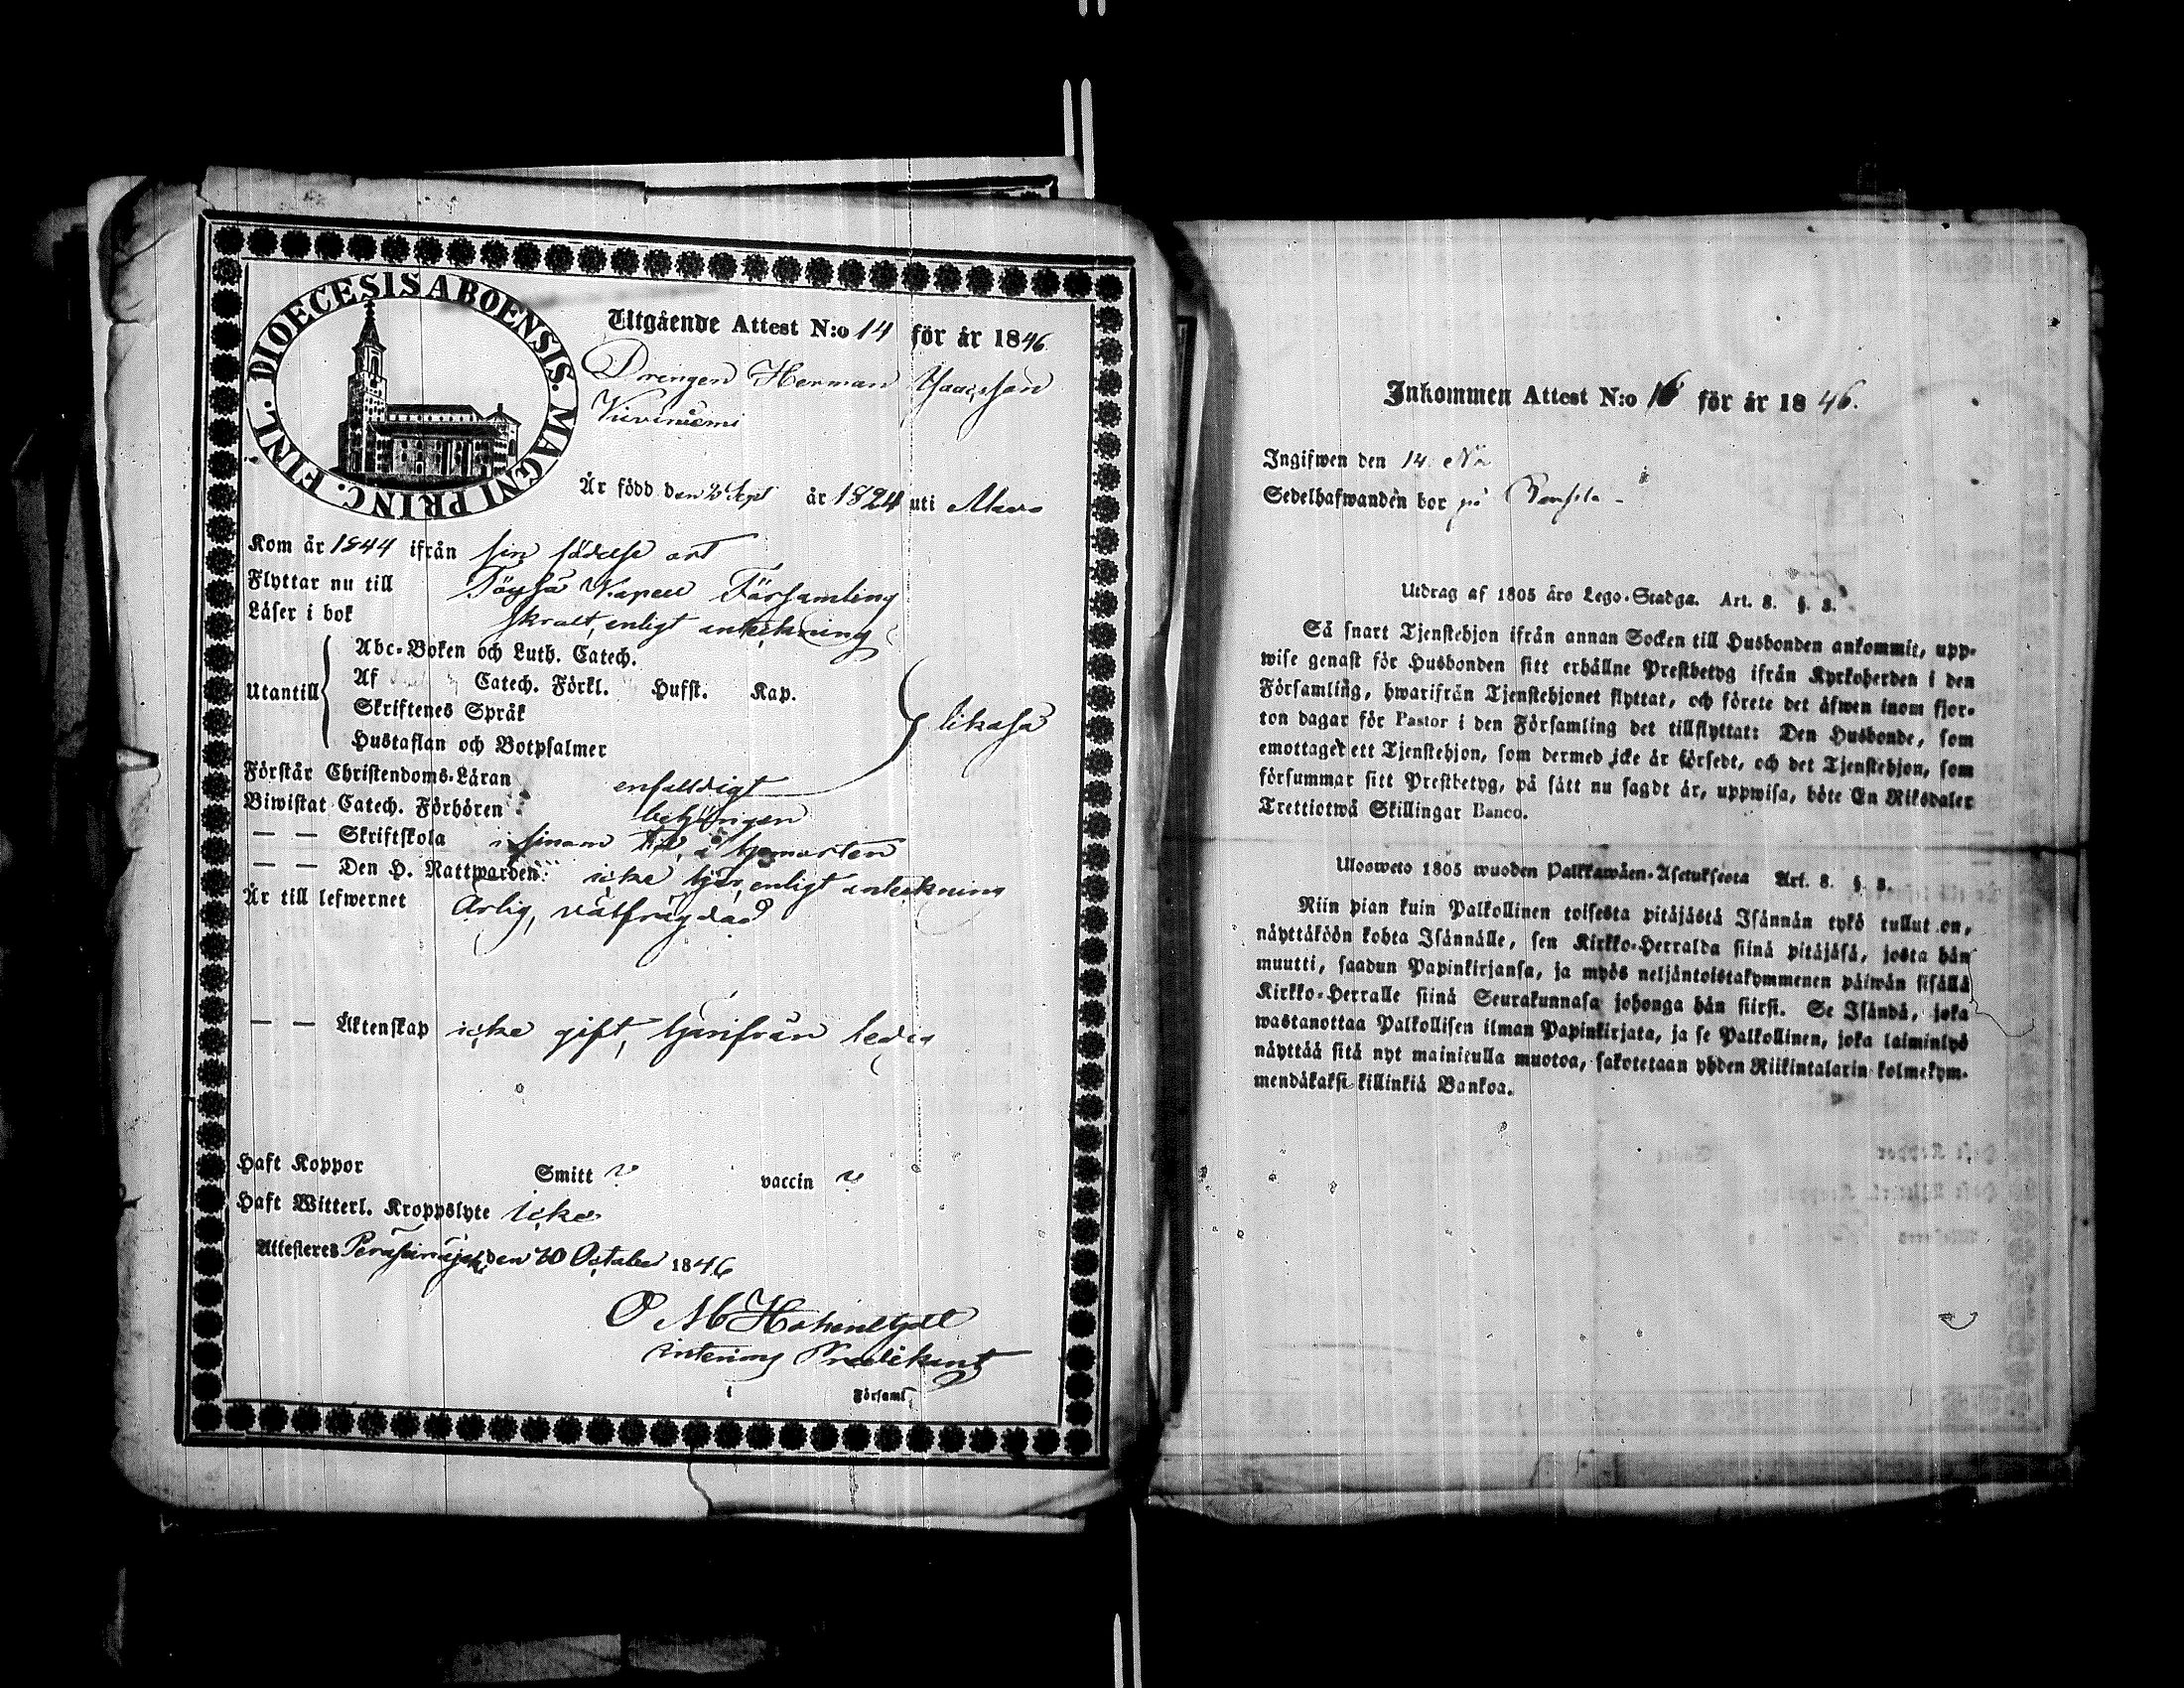 DIOECESIS ABOENSIS. MAGNI PRINC. FINL.
Utgående Attest N:o 14 för år 1846.
Drengen Herman
Är född den Sept år 1824 uti Alavo
Kom år 1844 ifrån sin födelse ort
Flyttar nu till Töysä Kapell Församling
Läser i bok svalt, enligt anteckning
Abc-Boken och Luth. Catech.
Af Catech. Förkl. Hufst. Kap.
Utantill
Skriftenes Språk
likaså
Hustaflan och Botpsalmer
Förstår Christendoms-Läran enfaldigt
Biwistat Catech. Förhören behörigen
— — Skriftskola i sinom tid, å hemorten
— — Den H. Nattwarden icke här, enligt anteckning
Är till lefwernet Ärlig, välfrägdad
— — Äktenskap icke gift, härifrån ledig
Haft Koppor Smitt v vaccin v
Haft Witterl. Kroppslyte icke
Attesteras Peräseinäjoki den 20 October 1846
interims Predikant
i Församl
Inkommen Attest N:o 16 för år 1846.
Ingifwen den 14
Sedelhafwanden bor på
Utdrag af 1805 års Lego-Stadga. Art. 8. §. 8.
Så snart Tjenstehjon ifrån annan Socken till Husbonden ankommit, upp-
wise genast för Husbonden sitt erhållne Prestbetyg ifrån Kyrkoherden i den
Församling, hwarifrån Tjenstehjonet flyttat, och förete det äfwen inom fjor-
ton dagar för Pastor i den Församling det tillflyttat: Den Husbonde, som
emottager ett Tjenstehjon, som dermed icke är försedt, och det Tjenstehjon, som
försummar sitt Prestbetyg, på sätt nu sagdt är, uppwisa, böte En Riksdaler
Trettiotwå Skillingar Banco.
Ulosweto 1805 wuoden Palkkawäen-Asetuksesta Art. 8. §. 8.
Niin pian kuin Palkollinen toisesta pitäjästä Isännän tykö tullut on,
näyttäköön kohta Isännälle, sen Kirkko-Herralda siinä pitäjäsä, josta hän
muutti, saadun Papinkirjansa, ja myös neljäntoistakymmenen päiwän sisällä
Kirkko-Herralle siinä Seurakunnasa johonga hän siirsi. Se Isändä, joka
wastanottaa Palkollisen ilman Papinkirjata, ja se Palkollinen, joka laiminlyö
näyttää sitä nyt mainitulla muotoa, sakotetaan yhden Riikintalarin kolmekym-
mendäkaksi killinkiä Bankoa.